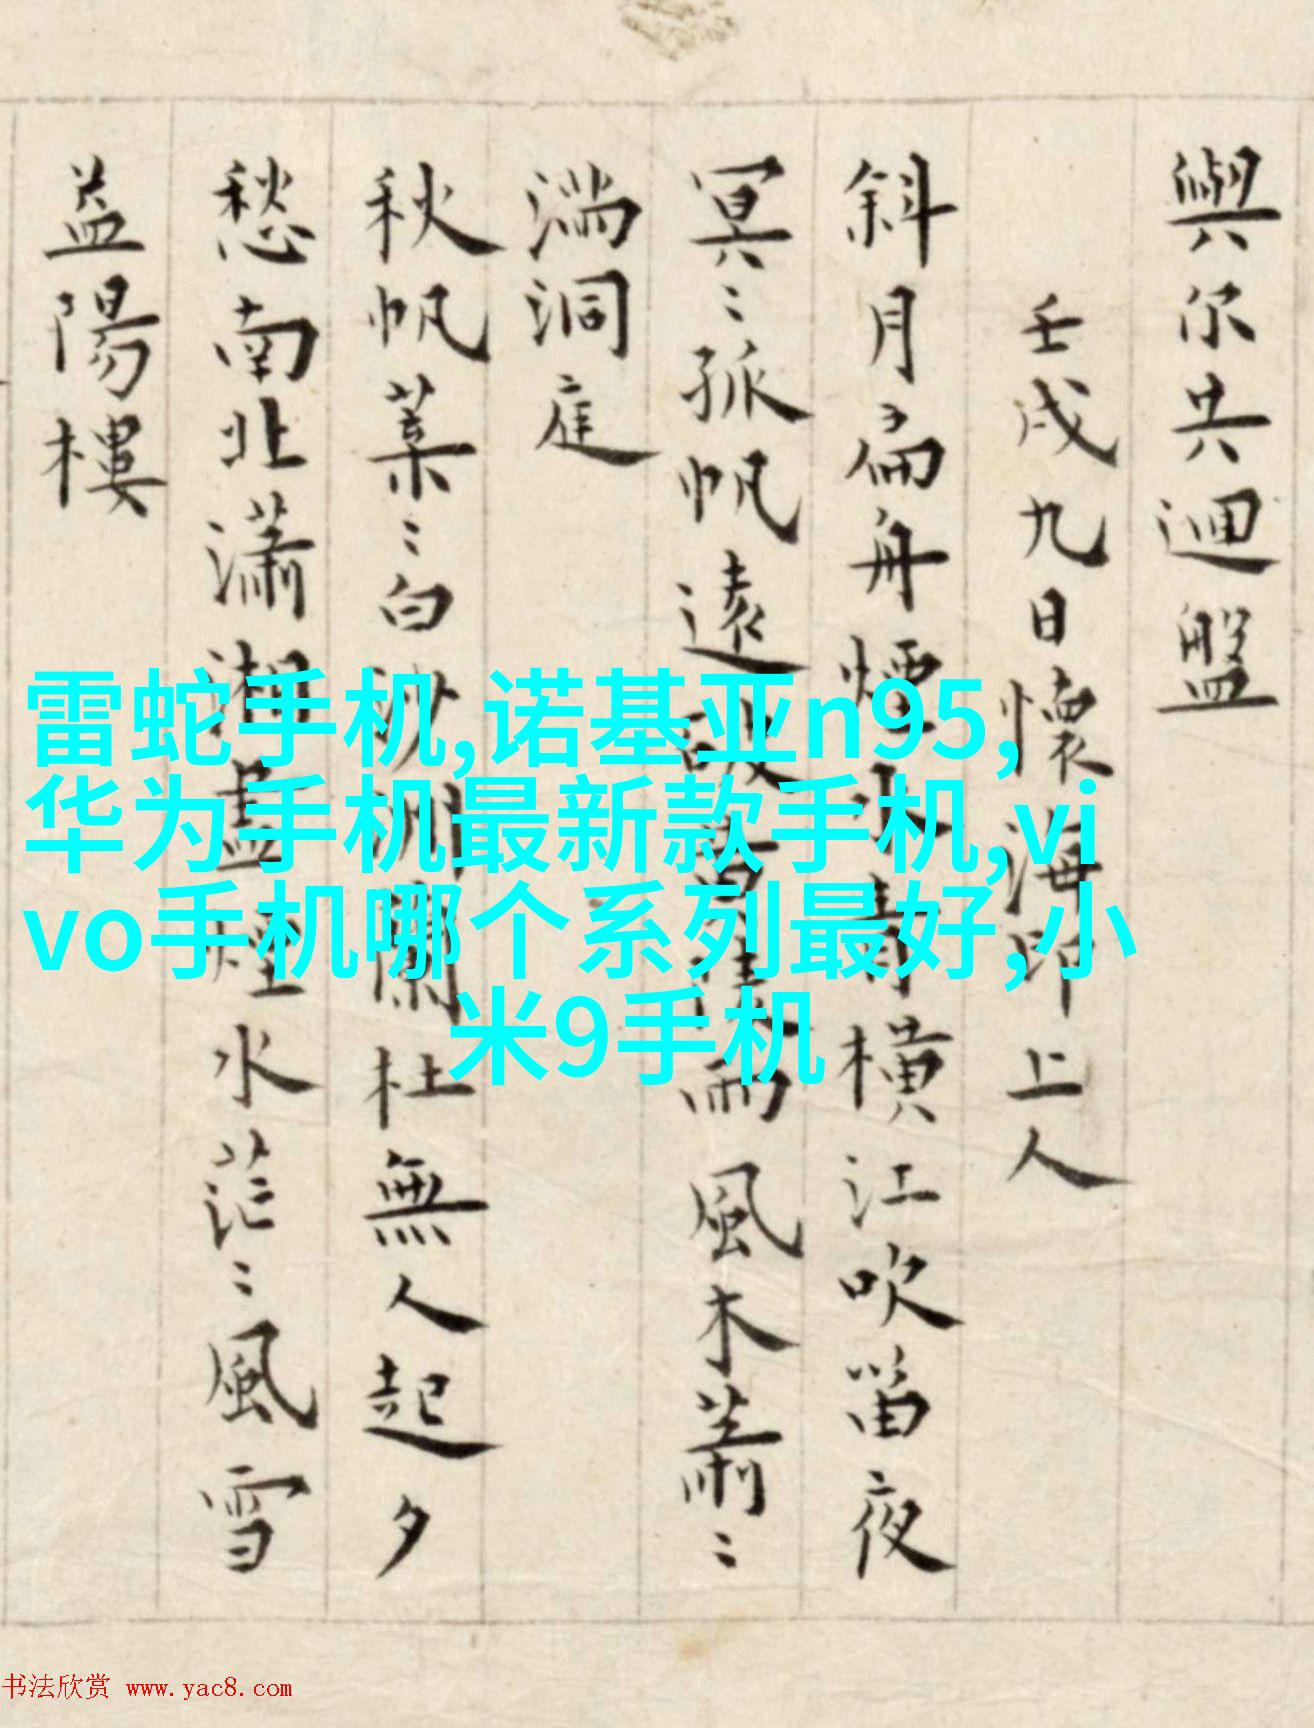 與尔共迴盤
壬戌九日懷海印上人
斜月扁舟煙横江吹笛夜
冥〻孤帆遠雨風木蕭〻
湍洞庭
秋帆葉〻白沙洲蘭杜無人起夕
愁南北瀟湘煙水茫〻風雪
益陽樓
雷蛇手机,诺基亚n95,
华为手机最新款手机,vi
vo手机哪个系列最好,小
米9手机
书法欣赏 www.yac8.com